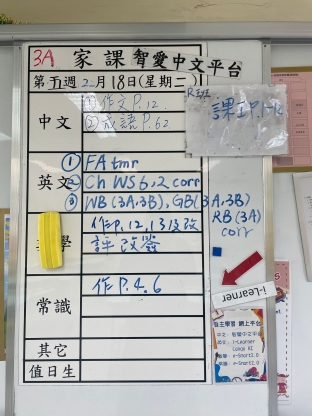 3A 家課 智愛中文平台
第五週2月18日(星期二)
中文
① 作文P.12
② 成語P.62
R班 課工P.1-12
英文
① FA tmr
② Ch WS 6,2 corr
③ WB (3A,3B), GB(3A,3B)
RB (3A)
corr
學
作P.12,13及改
評改簽
常識
作P.4,6
i-Learner
其它
值日生
自主學習 網上平台